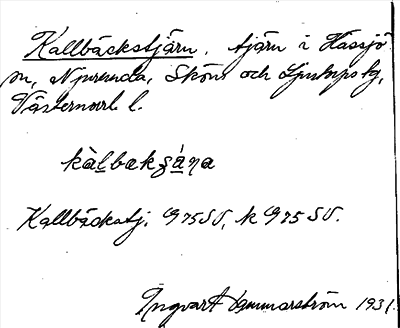 Kallbäckstjärn, tjärn i Hässjö
sn, Njurunda, Sköns och Ljustorps tg,
Västernorrl. l.
kàlbakʂánа
Kallbäckstj. G 75 SV, k G 75 SV.
Ingvart Hammarström 1931.